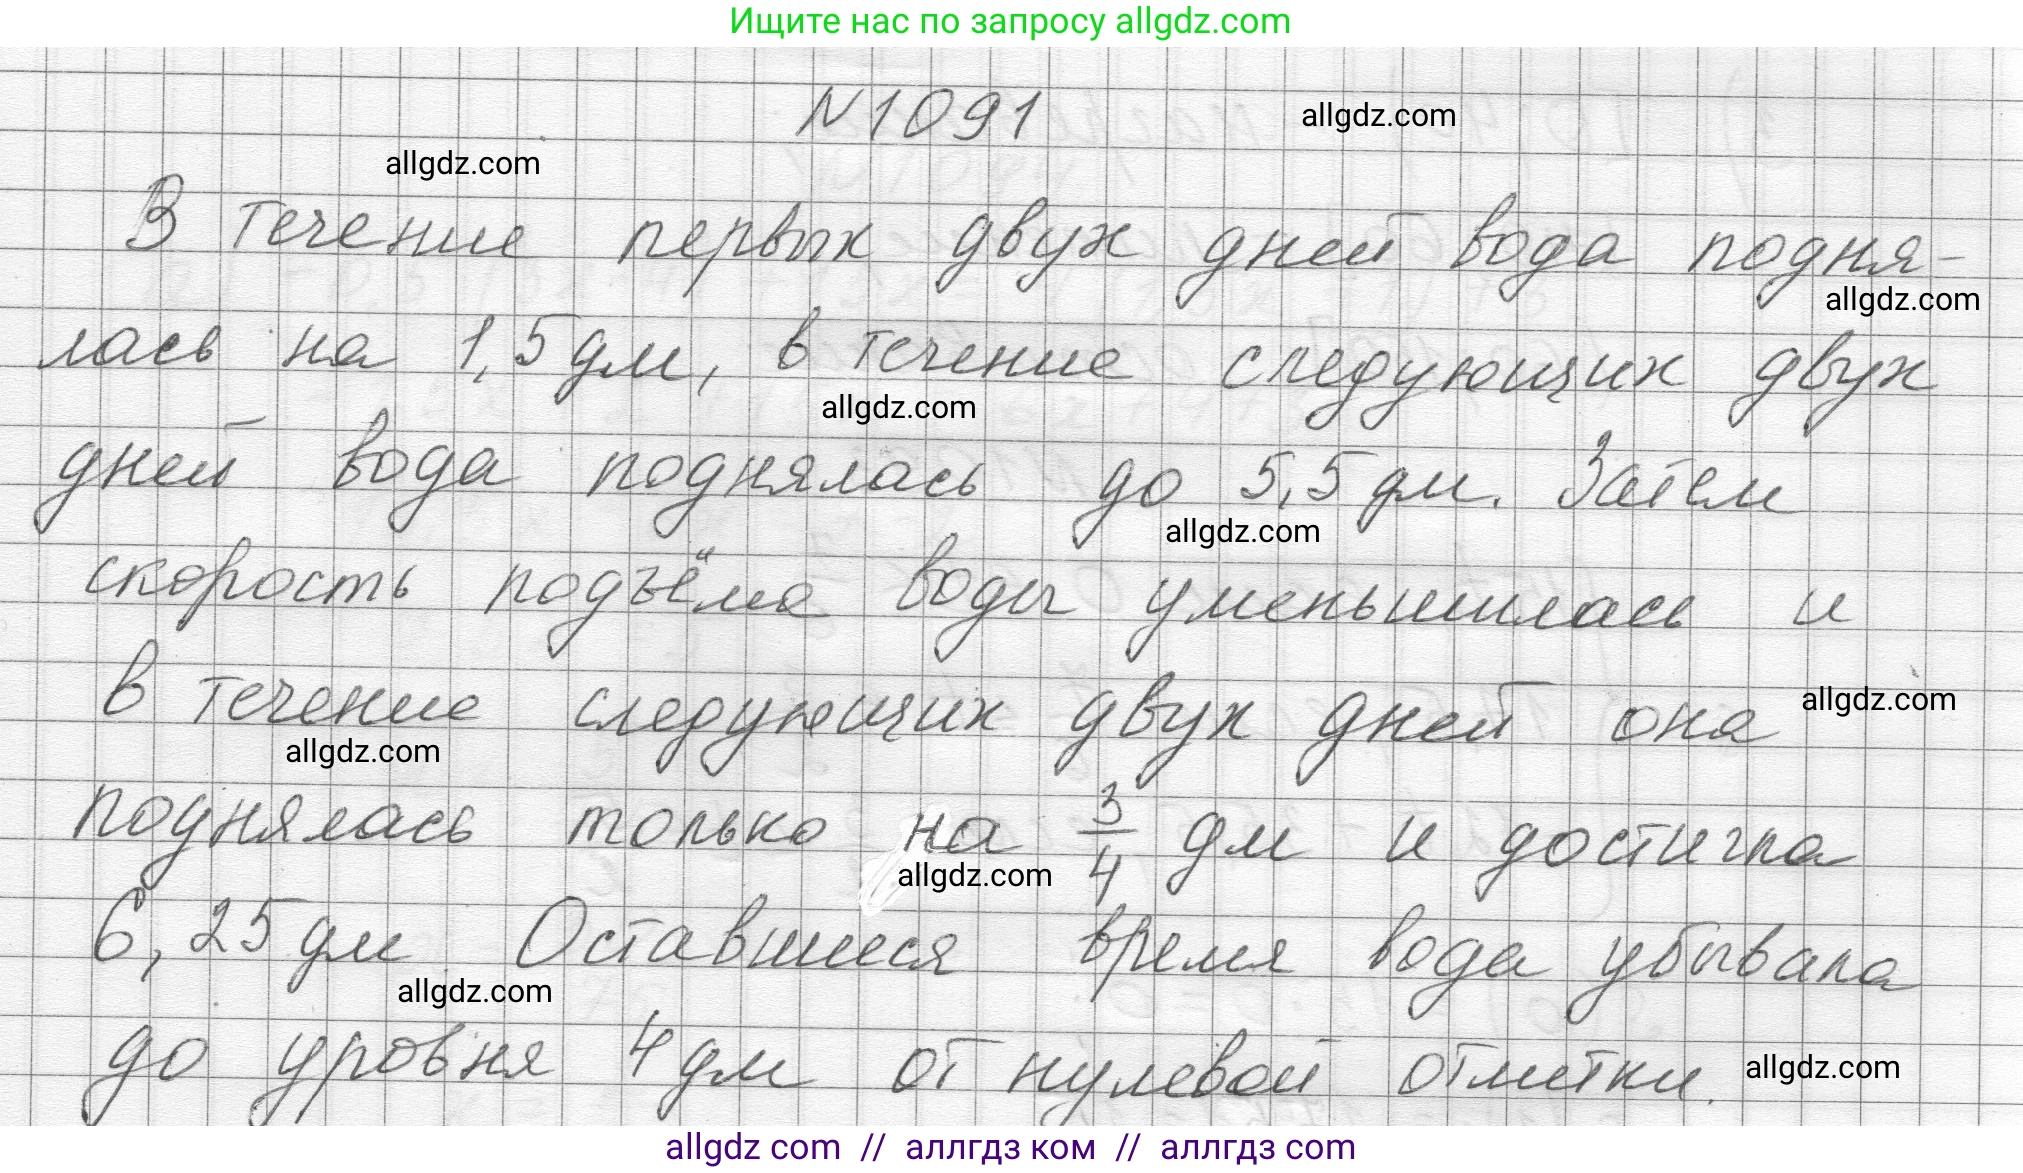 Ищите нас по запросу allgdz.com
N1091
allgdz.com
allgdz.com
В течение первых двух дней вода подня-
allgdz.com
лась на 1,5 дм, в течение следующих двух
allgdz.com
дней вода поднялась до 5,5 дм. Затем
allgdz.com
скорость подъёма воды уменьшилась и
в течение следующих двух дней она
allgdz.com
allgdz.com
поднялась только на 3/4 дм и достигла
allgdz.com
6,25 дм Оставшееся время вода убывала
allgdz.com
до уровня 4 дм от нулевой отметки.
allgdz.com
allgdz com // аллгдз ком // аллгдз com